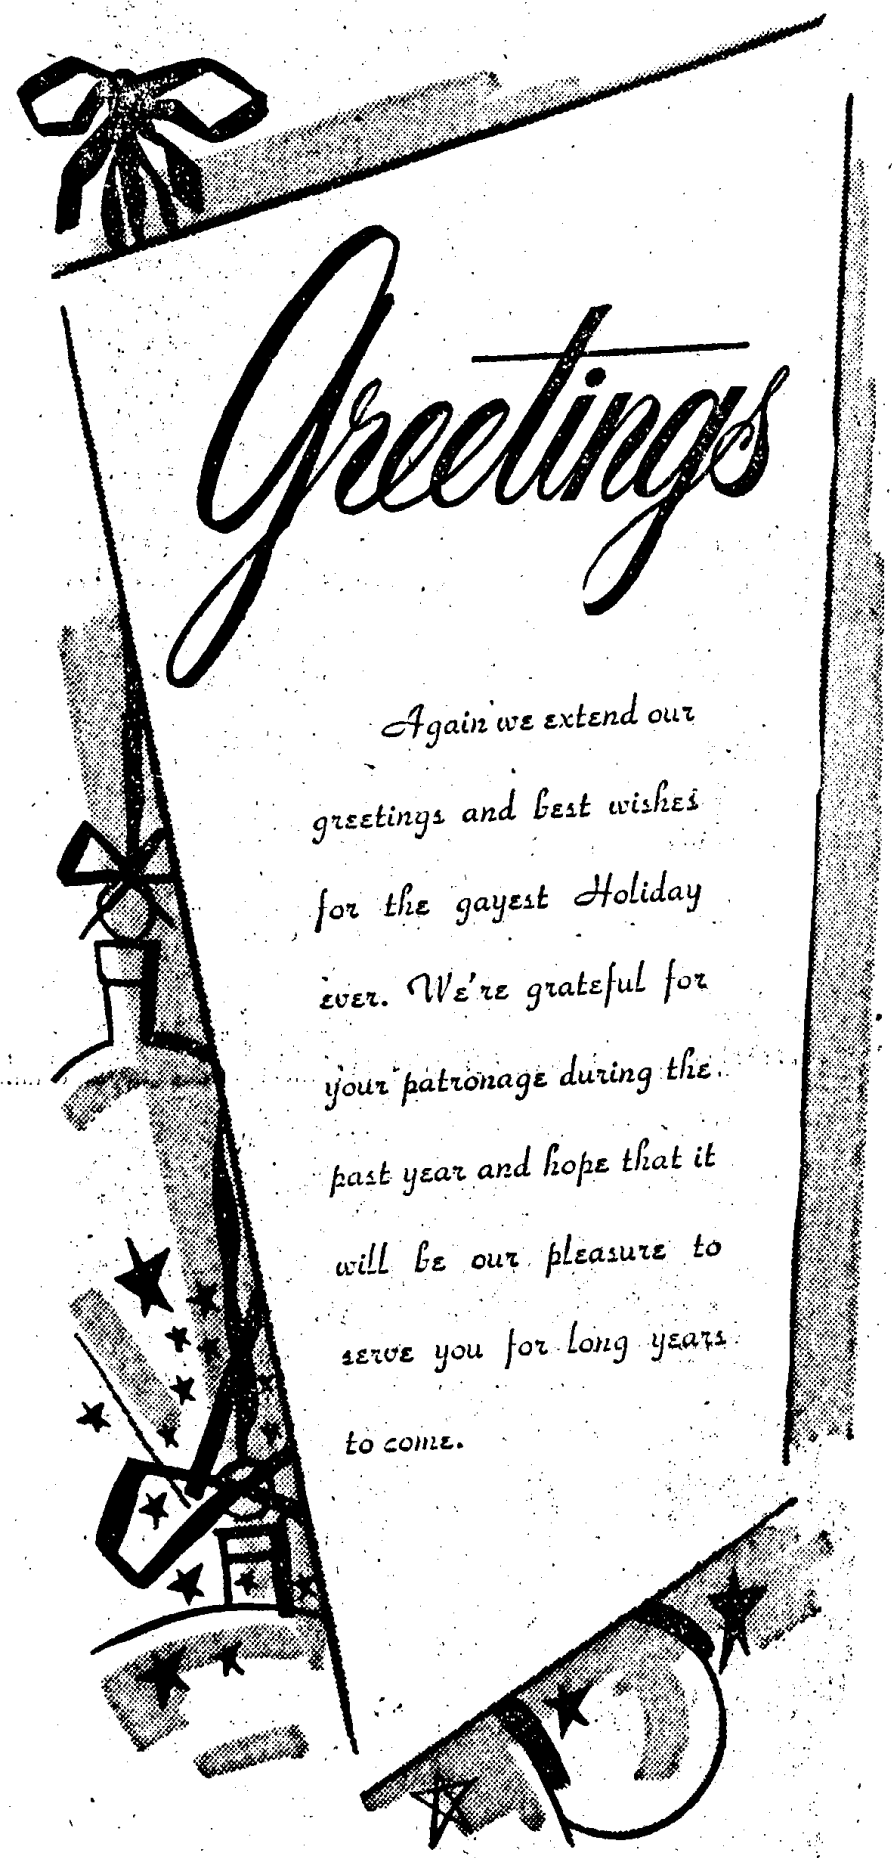 Greetings
Again we extend our
greetings and best wishes
for the gayest Holiday
ever. We're grateful for
your patronage during the
past year and hope that it
will be our pleasure to
serve you for long years
to come.